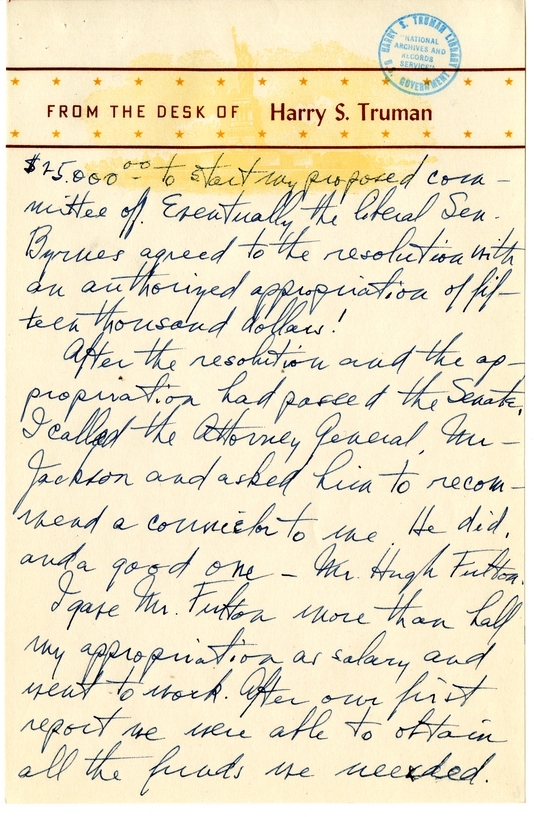 HARRY S. TRUMAN LIBRARY
"NATIONAL
ARCHIVES AND
RECORDS
SERVICE"
U.S. GOVERNMENT
FROM THE DESK OF Harry S. Truman
$25.000⁰⁰ to start my proposed com-
mittee of. Eventually the liberal Sen.
Byrnes agreed to the resolution with
an authorized appropriation of fif-
teen thousand dollars!
After the resolution and the ap-
propriation had passed the Senate,
I called the Attorney General, Mr-
Jackson and asked him to recom-
mend a councelor to me. He did,
and a good one - Mr. Hugh Fulton.
I gave Mr. Fulton more than half
my appropriation as salary and
went to work. After our first
report we were able to obtain
all the funds we needed.